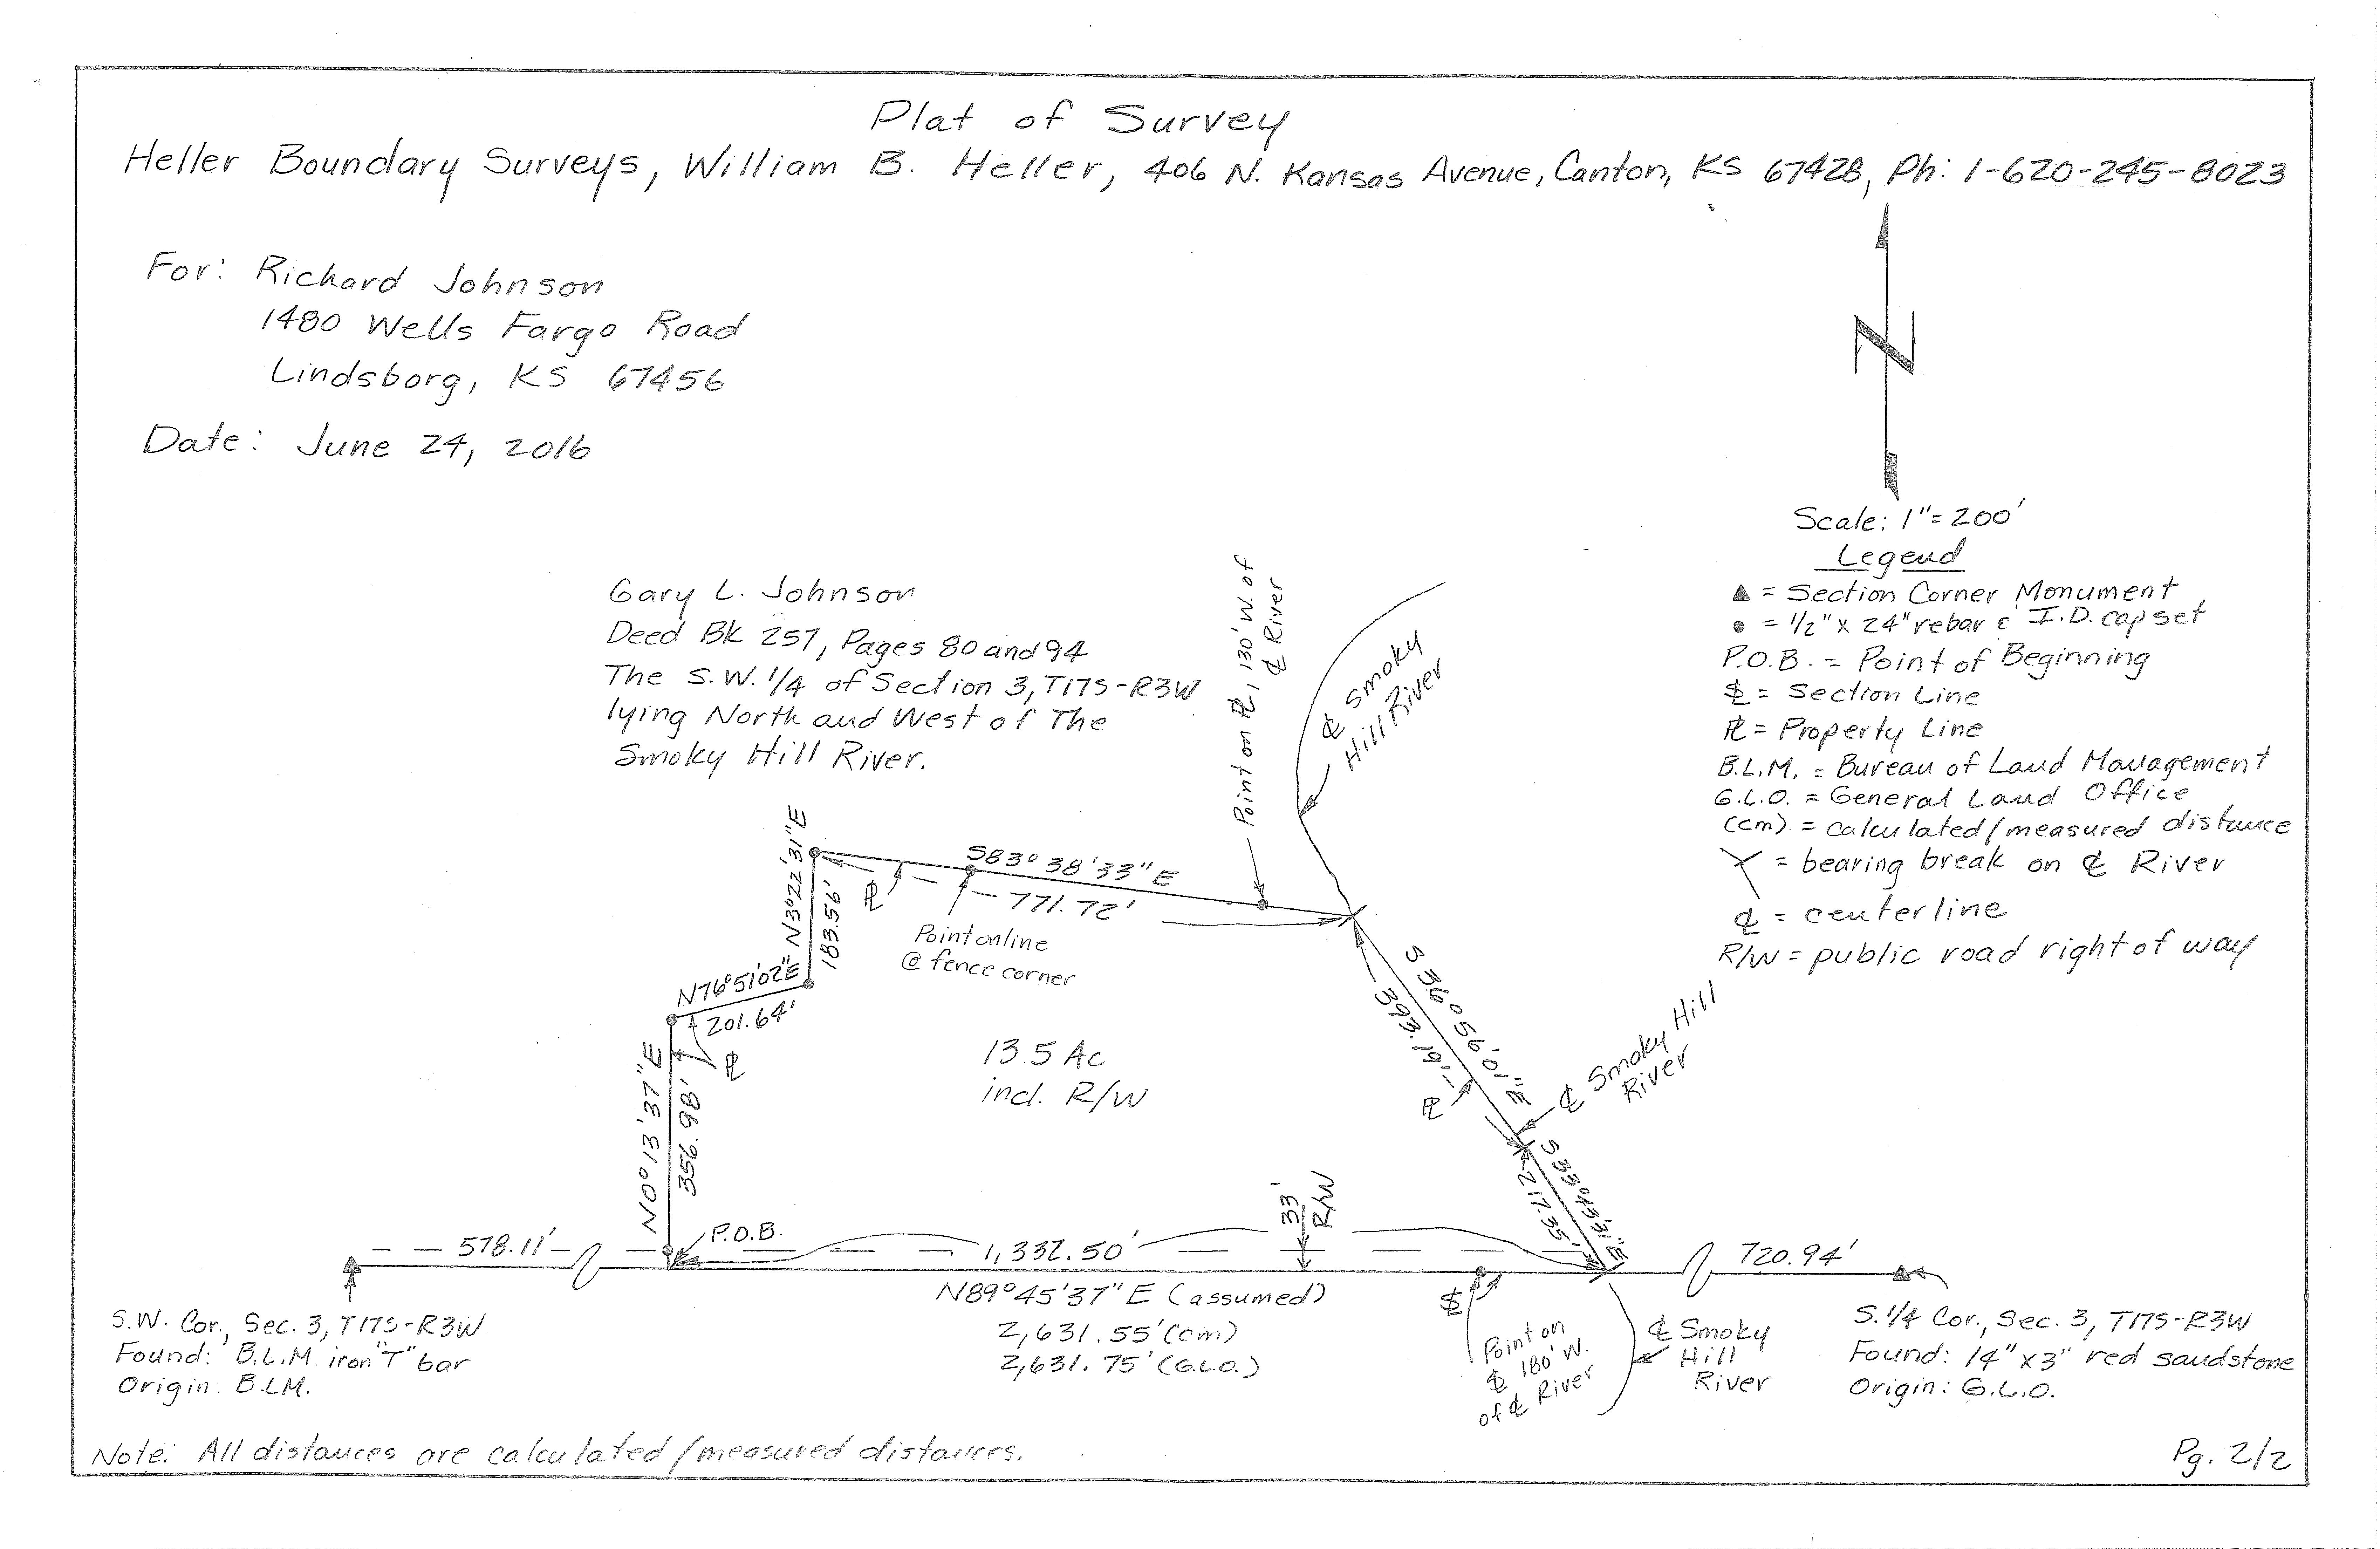 Plat of Survey
Heller Boundary Surveys, William B. Heller, 406 N. Kansas Avenue, Canton, KS 67428, Ph: 1-620-245-8023
For: Richard Johnson
1480 Wells Fargo Road
Lindsborg, KS 67456
Date: June 24, 2016
N
Scale: 1"=200'
Legend
▲ = Section Corner Monument
● = 1/2" x 24" rebar & I.D. cap set
P.O.B. = Point of Beginning
SL = Section Line
PL = Property Line
B.L.M. = Bureau of Land Management
G.L.O. = General Land Office
(cm) = calculated/measured distance
= bearing break on ℄ River
℄ = centerline
R/W = public road right of way
Gary L. Johnson
Deed Bk 257, Pages 80 and 94
The S.W. 1/4 of Section 3, T17S-R3W
lying North and West of The
Smoky Hill River.
Point on PL, 130' W. of
℄ River
℄ Smoky
Hill River
N3°22'31"E
183.56'
S83°38'33"E
771.72'
PL
Point on line
@ fence corner
N76°51'02"E
201.64'
PL
N0°13'37"E
356.98'
13.5 Ac
incl. R/W
S36°56'01"E
393.19'
PL
℄ Smoky Hill
River
S33°43'31"E
217.35'
33'
R/W
578.11'
P.O.B.
1,332.50'
720.94'
N89°45'37"E (assumed)
2,631.55' (cm)
2,631.75' (G.L.O.)
SL
Point on
SL 180' W.
of ℄ River
℄ Smoky
Hill
River
S.W. Cor., Sec. 3, T17S-R3W
Found: B.L.M. iron "T" bar
Origin: B.LM.
S. 1/4 Cor., Sec. 3, T17S-R3W
Found: 14" x 3" red sandstone
Origin: G.L.O.
Note: All distances are calculated/measured distances.
Pg. 2/2